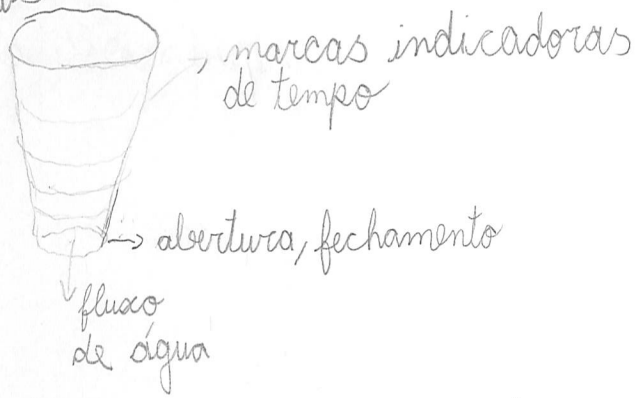 marcas indicadoras
de tempo
abertura, fechamento
fluxo
de água